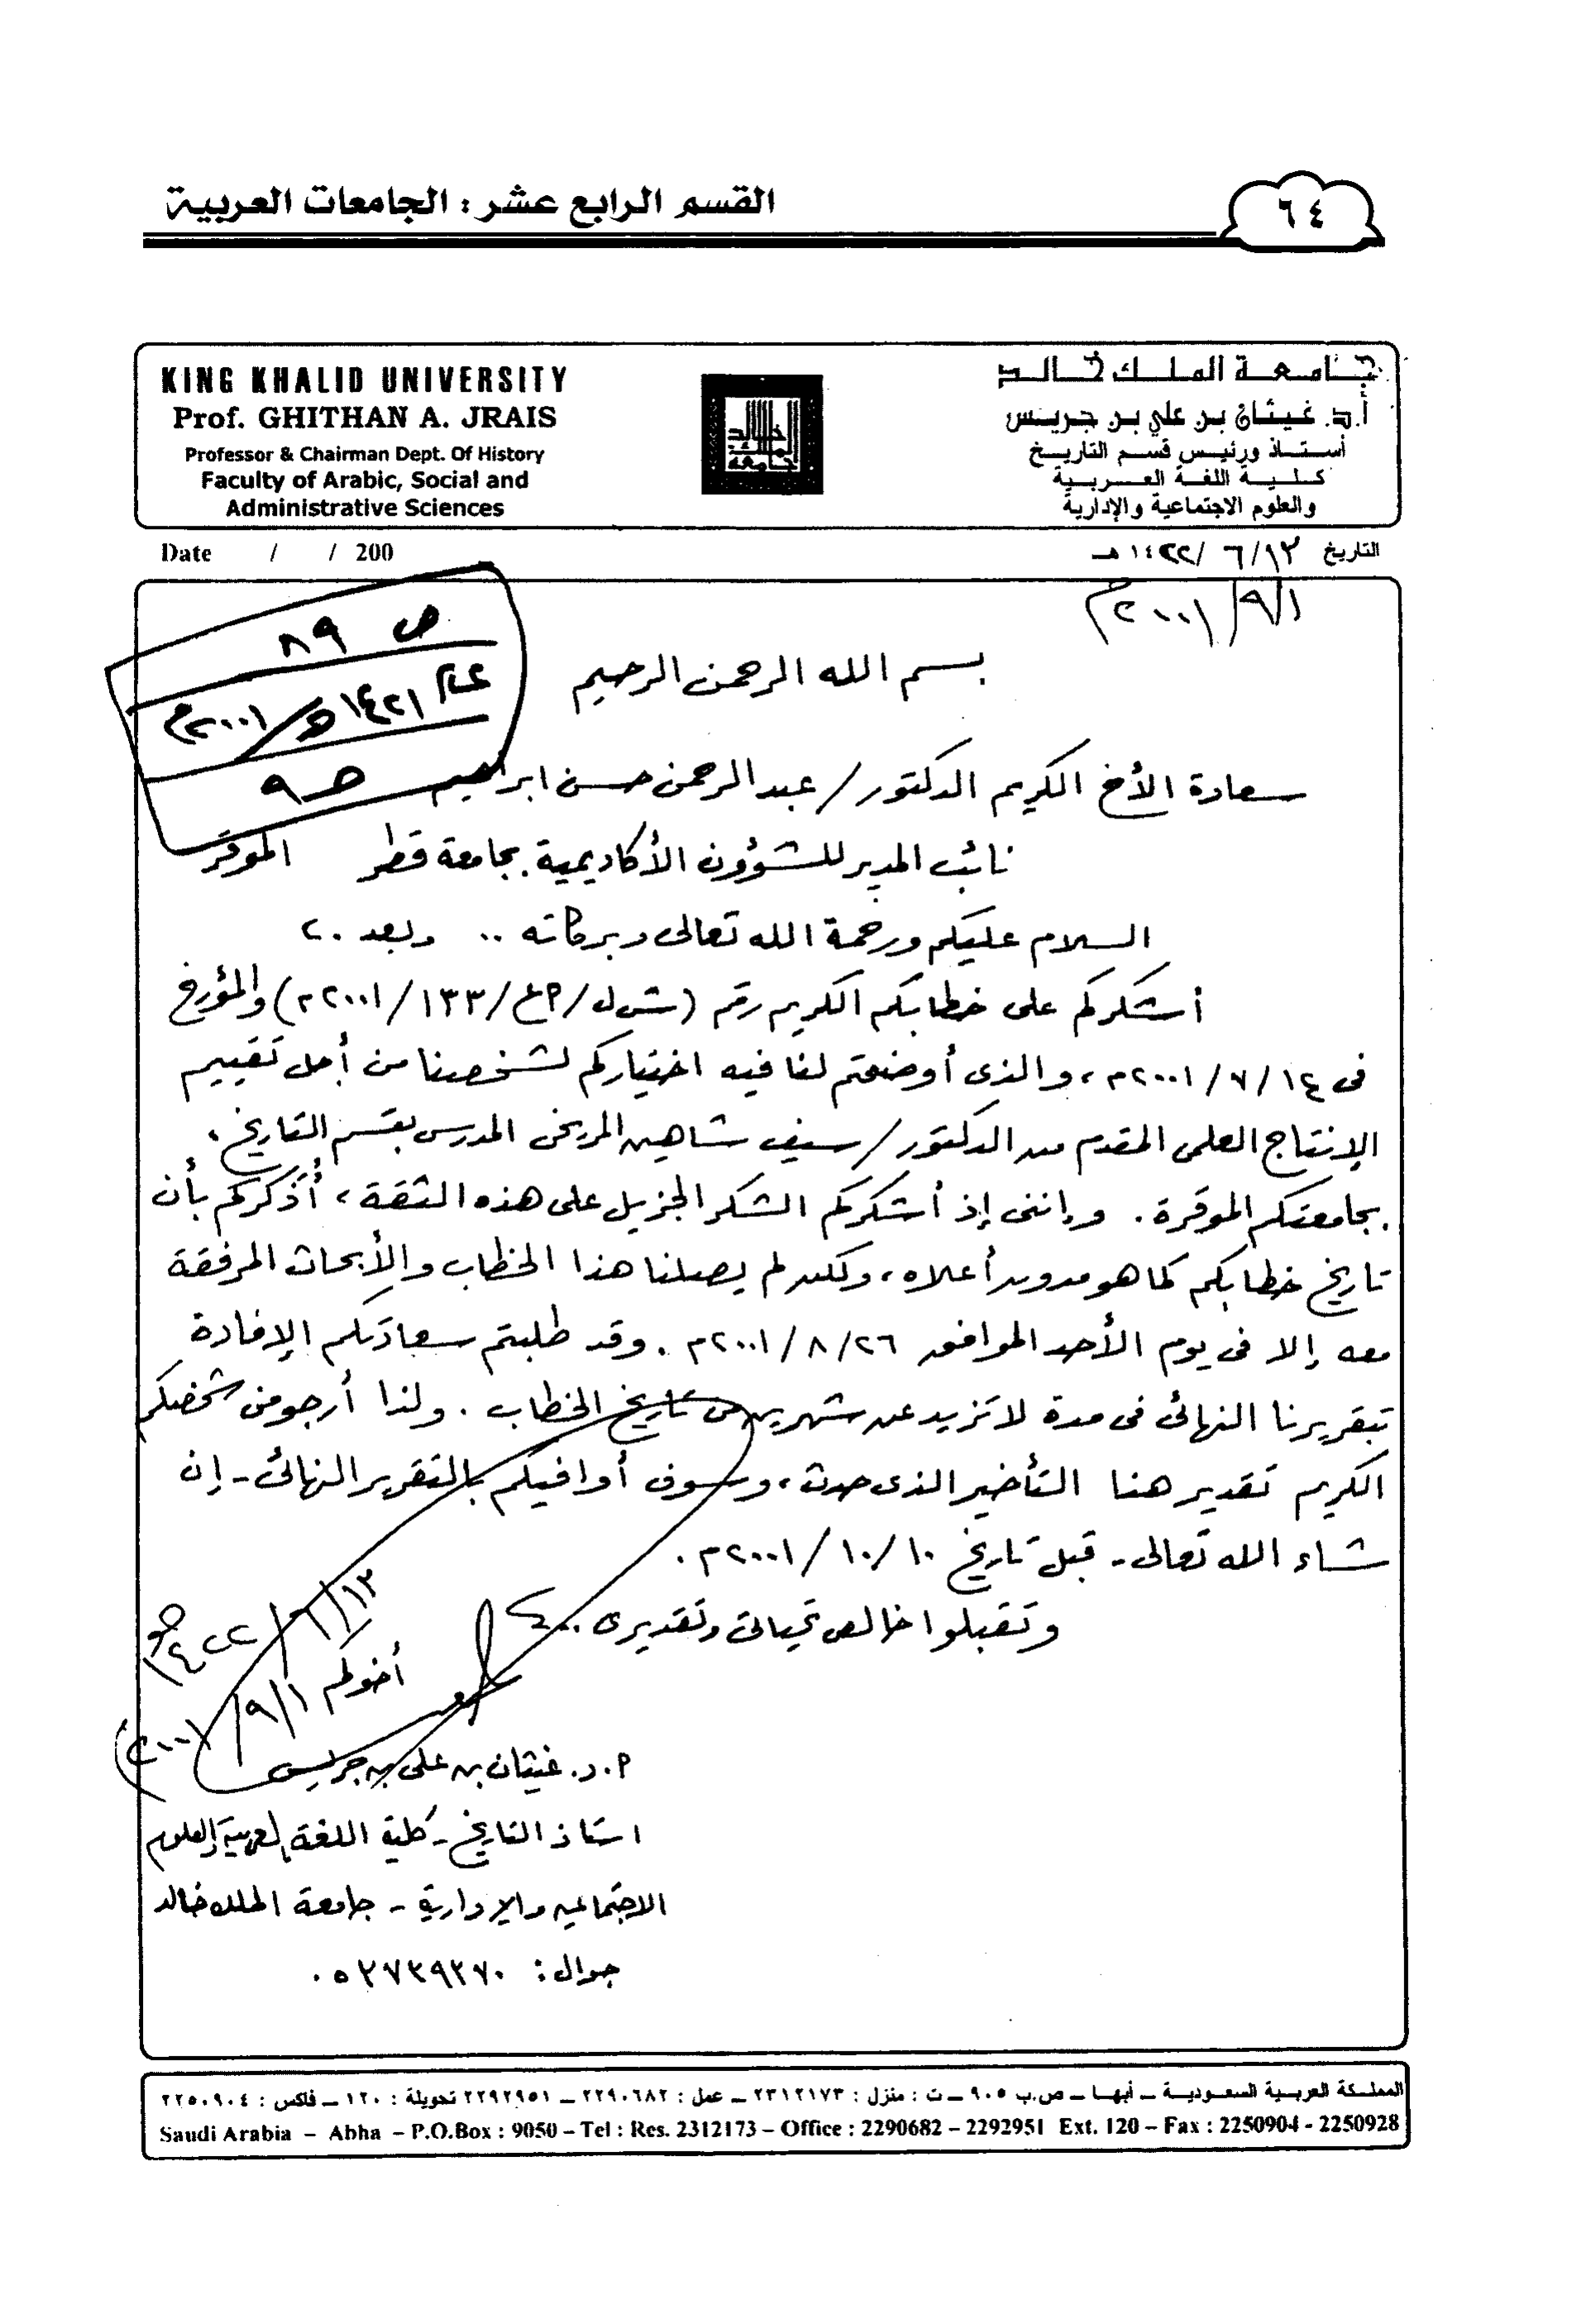 القسم الرابع عشر : الجامعات العربية
٦٤
جامعة الملك خالد
أ.د. غيثان بن علي بن جريس
أستاذ ورئيس قسم التاريخ
كلية اللغة العربية
والعلوم الاجتماعية والإدارية
KING KHALID UNIVERSITY
Prof. GHITHAN A. JRAIS
Professor & Chairman Dept. Of History
Faculty of Arabic, Social and
Administrative Sciences
جامعة الملك خالد
التاريخ ١٣/ ٦ /١٤٢٢هـ
Date / / 200
٢٠٠١/٩/١م
ص ٨٩
عام ١٤٢١هـ/٢٠٠١م
بسم الله الرحمن الرحيم
سعادة الأخ الكريم الدكتور / عبدالرحمن حسن ابراهيم
نائب المدير للشؤون الأكاديمية بجامعة قطر الموقر
السلام عليكم ورحمة الله تعالى وبركاته .. وبعد
أشكركم على خطابكم الكريم رقم ( /١٣٣/٢٠٠١م) والمؤرخ
في ١٤/ ٧ /٢٠٠١م، والذي أوضحتم لنا فيه اختياركم لشخصنا من أجل تقييم
الإنتاج العلمي المقدم من الدكتور / سيف شاهين المريخي المدرس بقسم التاريخ،
بجامعتكم الموقرة. وإنني إذ أشكركم الشكر الجزيل على هذه الثقة، أُذكركم بأن
تاريخ خطابكم كما هو مدون أعلاه، ولكن لم يصلنا هذا الخطاب والأبحاث المرفقة
معه إلا في يوم الأحد الموافق ٢٦/ ٨ /٢٠٠١م. وقد طلبتم سعادتكم الإفادة
بتقريرنا النهائي في مدة لا تزيد عن شهرين من تاريخ الخطاب. ولذا أرجو من شخصكم
الكريم تقدير هنا التأخير الذي حدث، وسوف أوافيكم بالتقرير النهائي - إن
شاء الله تعالى - قبل تاريخ ١٠/ ١٠ /٢٠٠١م.
وتقبلوا خالص تحياتي وتقديري ..
١٣/ ٦ /١٤٢٢هـ
أخوكم
(٢٠٠١/٩/١م)
أ.د. غيثان بن علي بن جريس
استاذ التاريخ - كلية اللغة العربية والعلوم
الاجتماعية والإدارية - جامعة الملك خالد
جوال: ٠٥٣٧٣٩٣٧٠
المملكة العربية السعودية – أبها – ص.ب ٩٠٥ – ت : منزل : ٢٣١٢١٧٣ – عمل : ٢٢٩٠٦٨٢ – ٢٢٩٢٩٥١ تحويلة : ١٢٠ – فاكس : ٢٢٥٠٩٠٤
Saudi Arabia – Abha – P.O.Box : 9050 – Tel : Res. 2312173 – Office : 2290682 – 2292951 Ext. 120 – Fax : 2250904 - 2250928